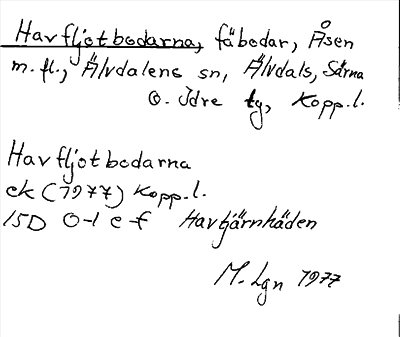 Havfljotbodarna, fäbodar, Åsen
m.fl., Älvdalens sn, Älvdals, Särna
o. Idre tg, Kopp.l.
Havfljotbodarna
ek (1977) Kopp.l.
15D 0-1 e-f Havtjärnhäden
M. Lgn 1977